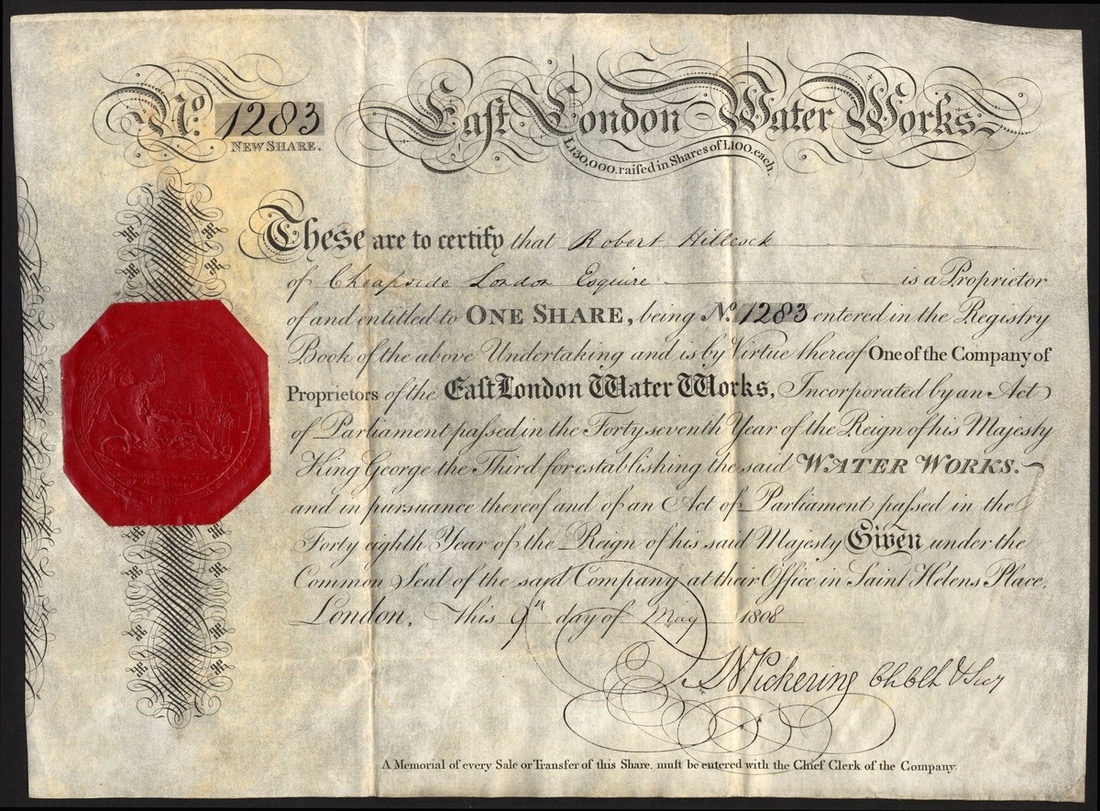 No. 1283
NEW SHARE.
East London Water Works
L130,000. raiſed in Shares of L100. each.
These are to certify that Robert Hillcock
of Cheapside London Esquire is a Proprietor
of and entitled to ONE SHARE, being No. 1283 entered in the Registry
Book of the above Undertaking and is by Virtue thereof One of the Company of
Proprietors of the East London Water Works, Incorporated by an Act
of Parliament paſsed in the Forty seventh Year of the Reign of his Majesty
King George the Third for establishing the said WATER WORKS.
and in pursuance thereof and of an Act of Parliament paſsed in the
Forty eighth Year of the Reign of his said Majesty Given under the
Common Seal of the said Company at their Office in Saint Helens Place,
London, This 9th day of May 1808
Pickering
A Memorial of every Sale or Transfer of this Share, muſt be entered with the Chief Clerk of the Company.